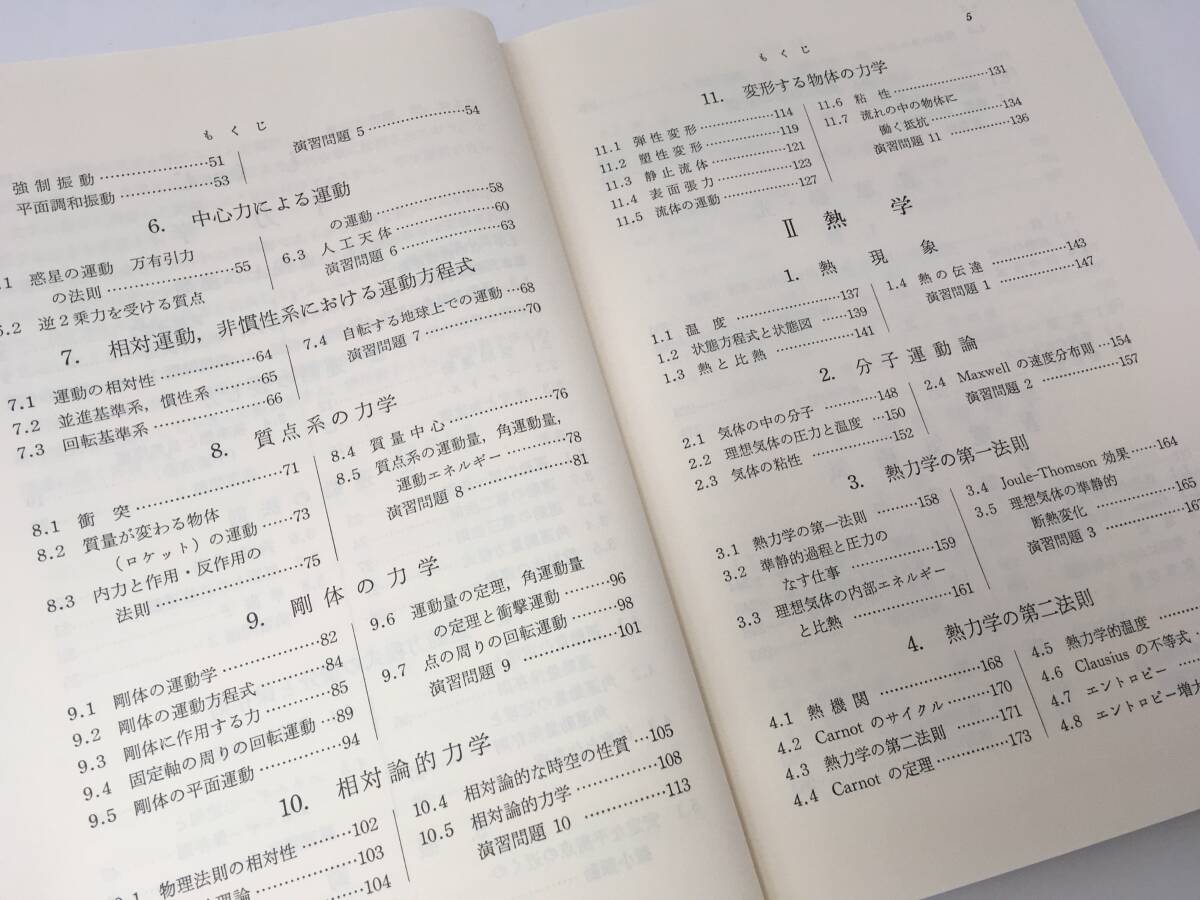 もくじ
強制振動…………………51
平面調和振動……………53
演習問題 5…………………54
6. 中心力による運動
惑星の運動 万有引力
の法則………………55
6.2 逆2乗力を受ける質点
の運動………………58
6.3 人工天体………………60
演習問題 6………………63
7. 相対運動，非慣性系における運動方程式
7.1 運動の相対性………………64
7.2 並進基準系，慣性系………65
7.3 回転基準系………………66
7.4 自転する地球上での運動…68
演習問題 7………………70
8. 質点系の力学
8.1 衝突………………71
8.2 質量が変わる物体
（ロケット）の運動……73
8.3 内力と作用・反作用の
法則………………75
8.4 質量中心………………76
8.5 質点系の運動量，角運動量，
運動エネルギー………78
演習問題 8………………81
9. 剛体の力学
9.1 剛体の運動学………………82
9.2 剛体の運動方程式…………84
9.3 剛体に作用する力…………85
9.4 固定軸の周りの回転運動…89
9.5 剛体の平面運動……………94
9.6 運動量の定理，角運動量
の定理と衝撃運動………96
9.7 点の周りの回転運動………98
演習問題 9………………101
10. 相対論的力学
物理法則の相対性………102
103
104
10.4 相対論的な時空の性質…105
10.5 相対論的力学……………108
演習問題 10………………113
5
もくじ
11. 変形する物体の力学
11.1 弾性変形………………114
11.2 塑性変形………………119
11.3 静止流体………………121
11.4 表面張力………………123
11.5 流体の運動……………127
11.6 粘性………………131
11.7 流れの中の物体に
働く抵抗………………134
演習問題 11………………136
II 熱学
1. 熱現象
1.1 温度………………137
1.2 状態方程式と状態図……139
1.3 熱と比熱………………141
1.4 熱の伝達………………143
演習問題 1………………147
2. 分子運動論
2.1 気体の中の分子…………148
2.2 理想気体の圧力と温度…150
2.3 気体の粘性………………152
2.4 Maxwell の速度分布則…154
演習問題 2………………157
3. 熱力学の第一法則
3.1 熱力学の第一法則………158
3.2 準静的過程と圧力の
なす仕事………………159
3.3 理想気体の内部エネルギー
と比熱………………161
3.4 Joule-Thomson 効果……164
3.5 理想気体の準静的
断熱変化………………165
演習問題 3………………167
4. 熱力学の第二法則
4.1 熱機関………………168
4.2 Carnot のサイクル………170
4.3 熱力学の第二法則………171
4.4 Carnot の定理……………173
4.5 熱力学的温度………
4.6 Clausius の不等式
4.7 エントロピー……
4.8 エントロピー増大